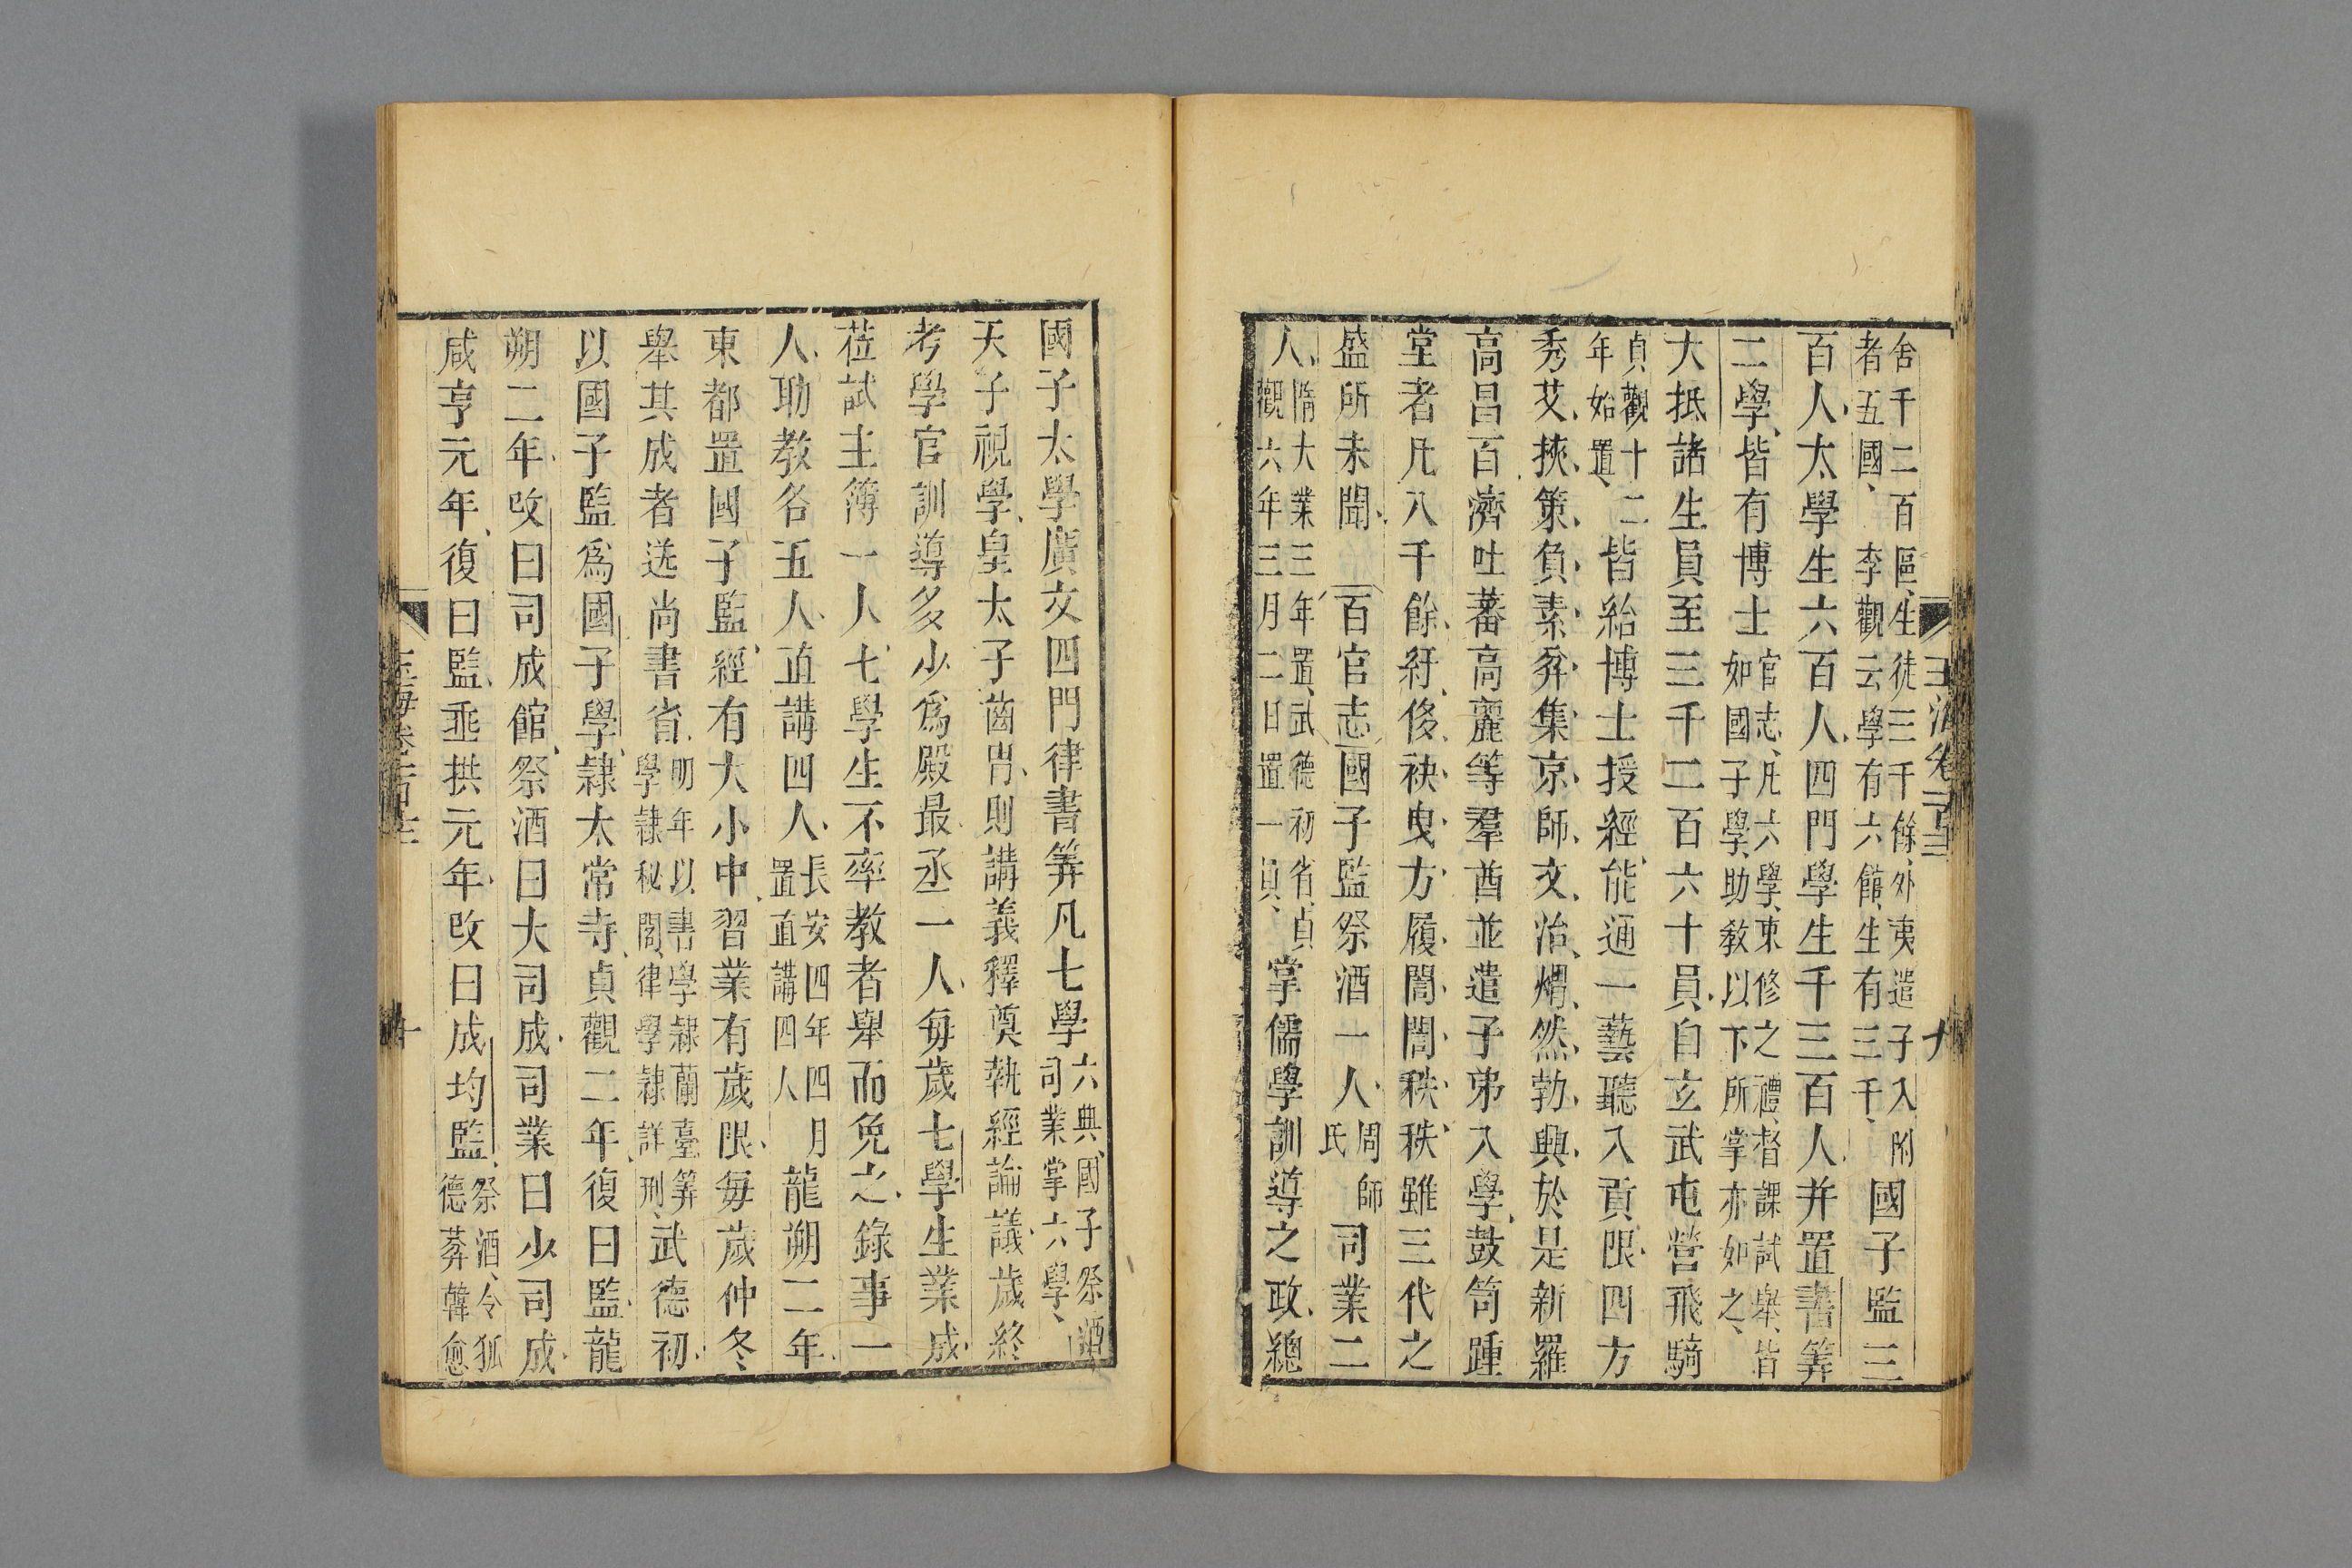 舍千二百區生徒三千餘外夷遣子入附
者五國李觀云學有六館生有三千
國子監三
百人太學生六百人四門學生千三百人并置書筭
二學皆有博士
官志凡六學東修之禮督課試舉皆
如國子學助敎以下所掌亦如之
大抵諸生員至三千二百六十員自玄武屯營飛騎
貞觀十二
年始置
皆給博士授經能通一藝聽入貢限四方
秀艾挾策負素坌集京師文治煟然勃興於是新羅
高昌百濟吐蕃高麗等羣酋並遣子弟入學鼓笥踵
堂者凡八千餘紆侈袂曳方履誾誾秩秩雖三代之
盛所未聞百官志國子監祭酒一人
周師
氏
司業二
人
隋大業三年置武德初省貞
觀六年三月二日置一員
掌儒學訓導之政總
玉海卷一百十二
九
國子太學廣文四門律書筭凡七學
六典國子祭酒
司業掌六學
天子視學皇太子齒胄則講義釋奠執經論議歲終
考學官訓導多少爲殿最丞一人每歲七學生業成
莅試主簿一人七學生不率教者舉而免之錄事一
人助教各五人直講四人
長安四年四月
置直講四人
龍朔二年
東都置國子監經有大小中習業有歲限每歲仲冬
舉其成者送尚書省
明年以書學隷蘭臺筭
學隷秘閣律學隷詳刑
武德初
以國子監爲國子學隷太常寺貞觀二年復曰監龍
朔二年改曰司成館祭酒曰大司成司業曰少司成
咸亨元年復曰監垂拱元年改曰成均監
祭酒令狐
德棻韓愈
玉海卷一百十二
十